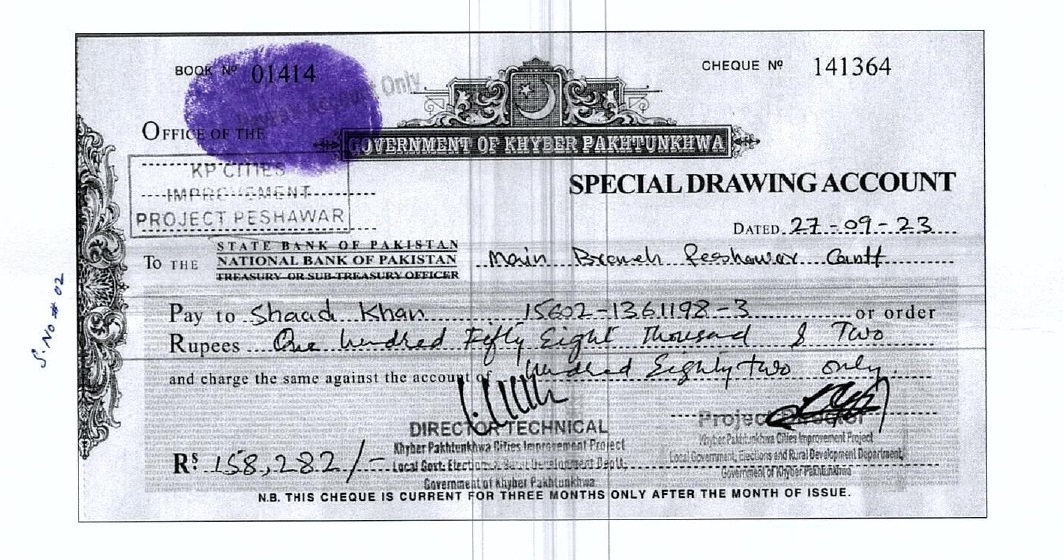 BOOK Nº 01414
CHEQUE Nº 141364
Only
OFFICE OF THE
GOVERNMENT OF KHYBER PAKHTUNKHWA
KP CITIES
IMPROVEMENT
PROJECT PESHAWAR
SPECIAL DRAWING ACCOUNT
DATED 27-09-23
STATE BANK OF PAKISTAN
TO THE NATIONAL BANK OF PAKISTAN Main Branch Peshawar Cantt
TREASURY OR SUB-TREASURY OFFICER
S. No # 02
Pay to Shaad Khan 15602-1361198-3 or order
Rupees One hundred Fifty Eight Thousand & Two
and charge the same against the account hundred Eighty two only.
DIRECTOR TECHNICAL
Khyber Pakhtunkhwa Cities Improvement Project
Local Govt: Elections & Rural Development Deptt.
Government of Khyber Pakhtunkhwa
Project Director
Khyber Pakhtunkhwa Cities Improvement Project
Local Government, Elections and Rural Development Department,
Government of Khyber Pakhtunkhwa
Rs 158,282/-
N.B. THIS CHEQUE IS CURRENT FOR THREE MONTHS ONLY AFTER THE MONTH OF ISSUE.